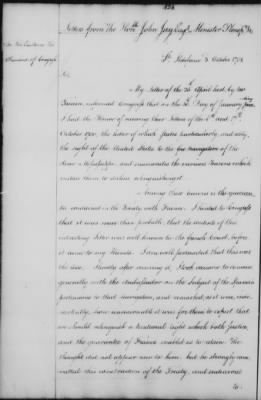 Letters from The Hon.ble John Jay Esq.r Minister Plenip.y &c
St. Ildefonso 3 October 1781
Sir
My Letter of the 25 April last, by
informed Congress that on the Day of January
I had the Honor of receiving their Letters of the 6th and 17th
October 1780, the latter of which states particularly and ably
the right of the United States to the free navigation of the
River Mississippi and enumerates the various Reasons which
render them to decline relinquishing it
Among these Reasons is the guarantee
contained in the Treaty with France. I hinted to Congress
that it was more than probable, that the contents of this
interesting Letter was well known to the french Court, before
it came to my Hands. I was well persuaded that this was
the case. Shortly after receiving it, I took occasion to converse
generally with the Ambassador on the Subject of the Spanish
pretensions to that navigation, and remarked, as it were
how unreasonable it was for them to expect that
we should relinquish a territorial right which both justice,
and the guarantee of France enabled us to retain. The
thought did not appear new to him, but he strongly com-
bated this construction of the Treaty, and endeavored
to